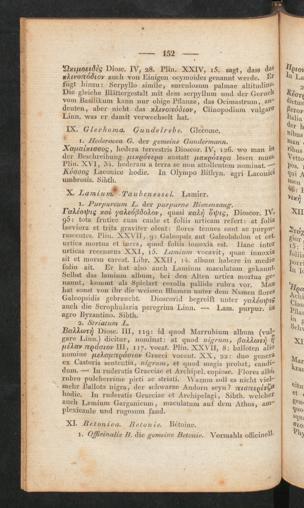 — 152 —
Ὠκιμοειδὲς Diosc. IV, 28. Plin. XXIV, 15. sagt, dass das
κλινοπόδιον auch von Einigen ocymoides genannt werde. Er
fügt hinzu: Serpyllo simile, surculosum palmae altitudine.
Die gleiche Blättergestalt mit dem serpyllum und der Geruch
vom Basilikum kann nur obige Pflanze, das Ocimastrum, an-
deuten, aber nicht das κλινοπόδιον, Clinopodium vulgare
Linn. was er damit verwechselt hat.
IX. Glechoma. Gundelrebe. Glécome.
1. Hederacea G. der gemeine Gundermann.
Χαμαίκισσος, hedera terrestris Dioscor. IV, 126. wo man in
der Beschreibung μικρότερα anstatt μακρότερα lesen muss.
Plin. XVI, 34. hederam a terra se non attollentem nominat. —
Κόσσος Laconice hodie. In Olympo Bithyn. agri Laconici
umbrosis. Sibth.
X. Lamium. Taubenessel. Lamier.
1. Purpureum L. der purpurne Bienensaug.
Γαλέοψις καὶ γαλεόβδολον, quasi καλὴ ὄψις, Dioscor. IV.
95: tota frutice cum caule et foliis urticam refert: at foliis
laeviora et trita graviter olent: flores tenues sunt ac purpu-
rascentes. Plin. XXVII, 9: Galeopsis aut Galeobdolon et cet.
urtica mortua et iners, quod foliis innoxia est. Hanc inter
urticas recensens XXI, 15. Lamium vocavit, quae innoxia
sit et morsu careat. Libr. XXII, 14. album habere in medio
folio ait. Er hat also auch Lamium maculatum gekannt.
Selbst das lamium album, bei den Alten urtica mortua ge-
nannt, kommt als Spielart corolla pallide rubra vor. Man
hat sonst von ihr die weissen Blumen unter dem Namen flores
Galeopsidis gebraucht. Dioscorid begreift unter γαλέοψις
auch die Scrophularia peregrina Linn. — Lam. purpur. in
agro Byzantino. Sibth.
2. Striatum L.
Βαλλωτὴ Diosc. III, 119: id quod Marrubium album (vul-
gare Linn.) dicitur, nominat: at quod nigrum, βαλλωτὴ ἢ
μέλαν πράσιον III, 117. vocat. Plin. XXVII, 8: balloten alio
nomine μελαμπράσιον Graeci vocant. XX, 22: duo genera
ex Castoris sententia, nigrum, et quod magis probat, candi-
dum. — In ruderatis Graeciae et Archipel. copiose. Flores albi
rubro pulcherrime picti ac striati. Warum soll es nicht viel-
mehr Ballota nigra, der schwarze Andorn seyn?
hodie. In ruderatis Graeciae et Archipelagi, Sibth. welcher
auch Lamium Garganicum, maculatum auf dem Athos, am-
plexicaule und rugosum fand.
XI. Betonica. Betonie. Bétoine.
1. Officinalis B. die gemeine Betonie. Vormahls officinell.